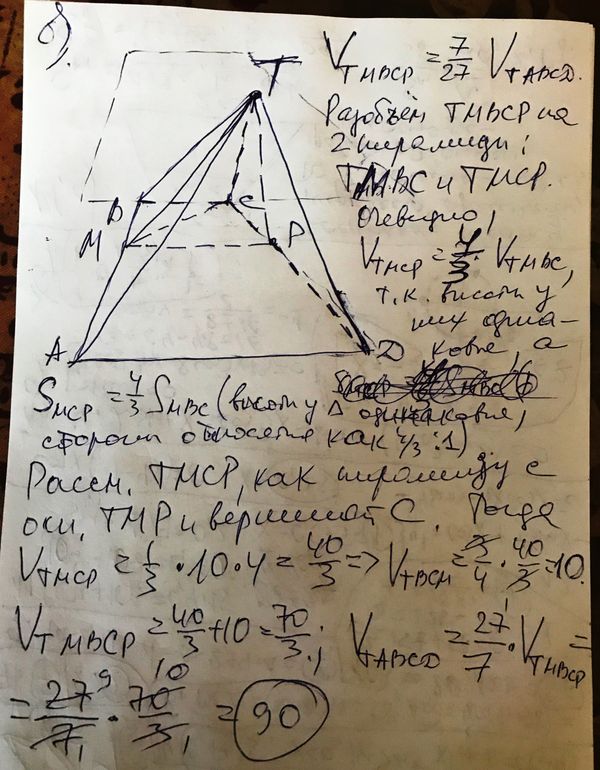 б).
V_TMBCP = 7/27 V_TABCD.
Разобъём TMBCP на
2 пирамиды:
TMBC и TMCP.
очевидно,
V_TMCP = 4/3 · V_TMBC,
т.к. высоты у
них одина-
ковые, а
T
B C
M P
A D
S_MCP = 4/3 S_MBC (высоты у Δ одинаковые,
стороны относятся как 4/3 : 1)
Рассм. TMCP, как пирамиду с
осн. TMP и вершиной C. Тогда
V_TMCP = 1/3 · 10 · 4 = 40/3 => V_TBCM = 3/4 · 40/3 = 10.
V_TMBCP = 40/3 + 10 = 70/3; V_TABCD = 27/7 · V_TMBCP =
= 27/7 · 70/3 = 90